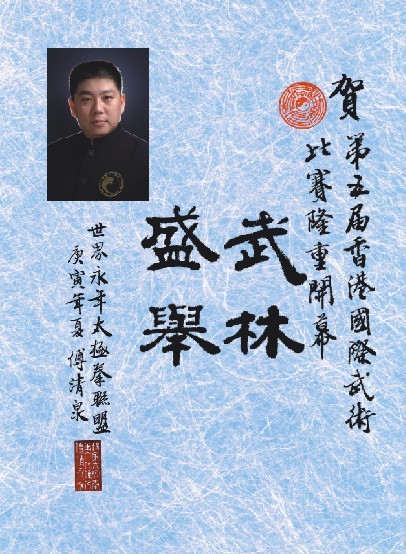 賀第五届香港國際武術
比賽隆重開幕
武林
盛舉
世界永年太極拳聯盟
庚寅年夏 傅清泉